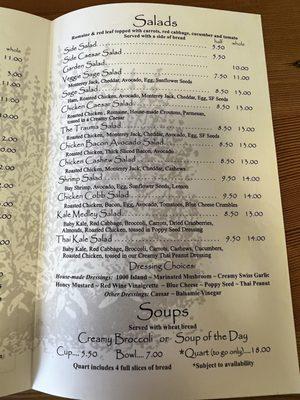 whole
11.00
Salads
Romaine & red leaf topped with carrots, red cabbage, cucumber and tomato
Served with a side of bread
half whole
Side Salad 5.50
Side Caesar Salad 5.50
Garden Salad 10.00
Veggie Sage Salad 7.50 11.00
Monterey Jack, Cheddar, Avocado, Egg, Sunflower Seeds
Sage Salad 8.50 13.00
Ham, Roasted Chicken, Avocado, Monterey Jack, Cheddar, Egg, SF Seeds
Chicken Caesar Salad 8.50 13.00
Roasted Chicken, Romaine, House-made Croutons, Parmesan,
tossed in a Creamy Caesar
The Trauma Salad 8.50 13.00
Roasted Chicken, Monterey Jack, Cheddar, Avocado, Egg, SF Seeds
Chicken Bacon Avocado Salad 8.50 13.00
Roasted Chicken, Thick Sliced Bacon, Avocado
Chicken Cashew Salad 8.50 13.00
Roasted Chicken, Monterey Jack, Cheddar, Cashews
Shrimp Salad 9.50 14.00
Bay Shrimp, Avocado, Egg, Sunflower Seeds, Lemon
Chicken Cobb Salad 9.50 14.00
Roasted Chicken, Bacon, Egg, Avocado, Tomatoes, Blue Cheese Crumbles
Kale Medley Salad 8.50 13.00
Baby Kale, Red Cabbage, Broccoli, Carrots, Dried Cranberries,
Almonds, Roasted Chicken, tossed in Poppy Seed Dressing
Thai Kale Salad 9.50 14.00
Baby Kale, Red Cabbage, Broccoli, Carrots, Cashews, Cucumbers,
Roasted Chicken, tossed in our Creamy Thai Peanut Dressing
Dressing Choices:
House-made Dressings: 1000 Island ~ Marinated Mushroom ~ Creamy Swiss Garlic
Honey Mustard ~ Red Wine Vinaigrette ~ Blue Cheese ~ Poppy Seed ~ Thai Peanut
Other Dressings: Caesar ~ Balsamic Vinegar
Soups
Served with wheat bread
Creamy Broccoli or Soup of the Day
Cup.... 5.50 Bowl.... 7.00 *Quart (to go only)....18.00
Quart includes 4 full slices of bread *Subject to availability